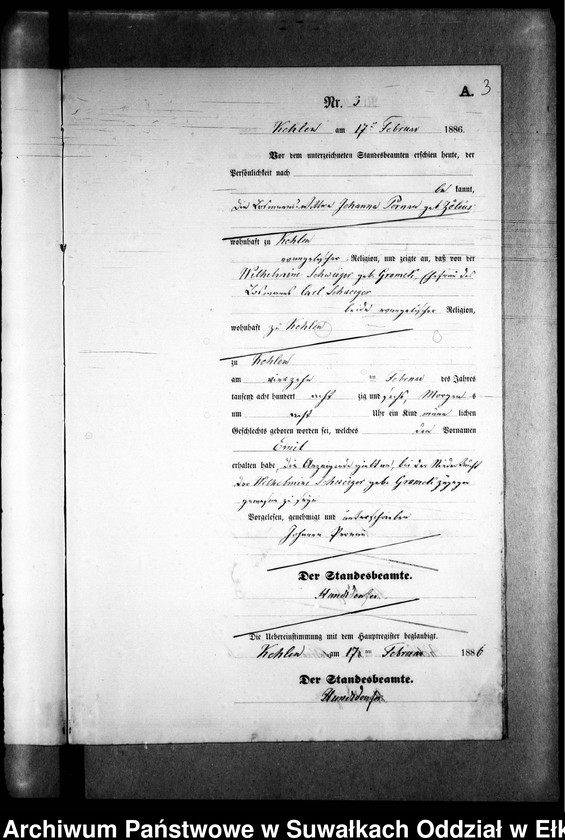 A. 3
Nr. 3
Kehlen am 17n Februar 1886.
Vor dem unterzeichneten Standesbeamten erschien heute, der
Persönlichkeit nach
be kannt,
die Losmannswittwe Johanna Pernau geb
wohnhaft zu Kehlen
evangelischer Religion, und zeigte an, daß von der
Wilhelmine Schweiger geb. Gromek, Ehefrau des
Losmanns Carl Schweiger
beide evangelischer Religion,
wohnhaft zu Kehlen
zu Kehlen
am vierzehn ten Februar des Jahres
tausend acht hundert acht zig und sechs, Morgens
um acht Uhr ein Kind männ lichen
Geschlechts geboren worden sei, welches den Vornamen
Emil
erhalten habe, die Anzeigende bei der Niederkunft
der Wilhelmine Schweiger geb. Gromek zugegen
gewesen zu sein
Vorgelesen, genehmigt und unterschrieben
Johanna Pernau
Der Standesbeamte.
Die Uebereinstimmung mit dem Hauptregister beglaubigt.
Kehlen am 17ten Februar 1886
Der Standesbeamte.
Archiwum Państwowe w Suwałkach Oddział w Ełk